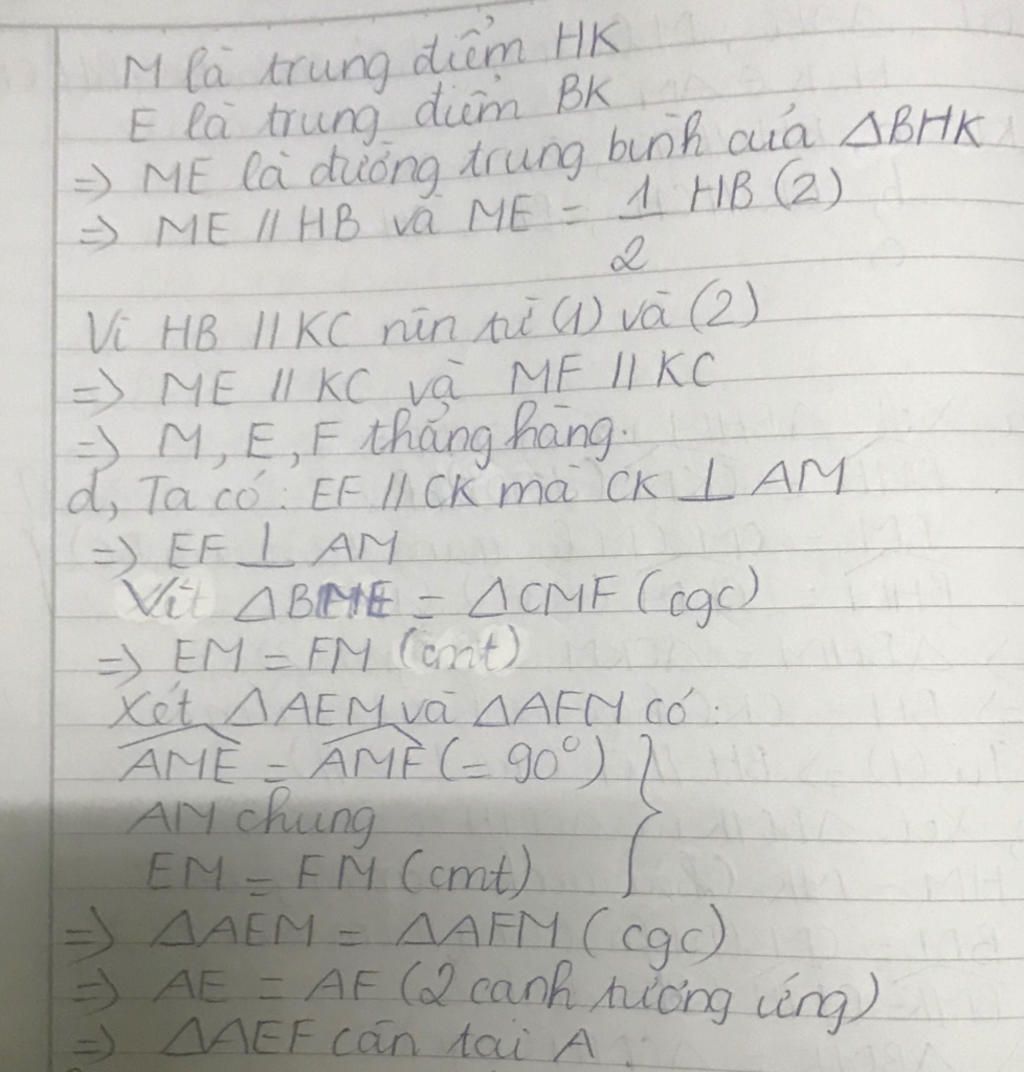 M là trung điểm HK
E là trung điểm BK
=> ME là đường trung bình của ΔBHK
=> ME // HB và ME = 1/2 HB (2)
Vì HB // KC nên từ (1) và (2)
=> ME // KC và MF // KC
=> M, E, F thẳng hàng.
d, Ta có: EF // CK mà CK ⊥ AM
=> EF ⊥ AM
Vít ΔBME = ΔCMF (cgc)
=> EM = FM (cmt)
Xét ΔAEM và ΔAFM có:
∠AME = ∠AMF (= 90°) }
AM chung
EM = FM (cmt)
=> ΔAEM = ΔAFM (cgc)
=> AE = AF (2 cạnh tương ứng)
=> ΔAEF cân tại A.